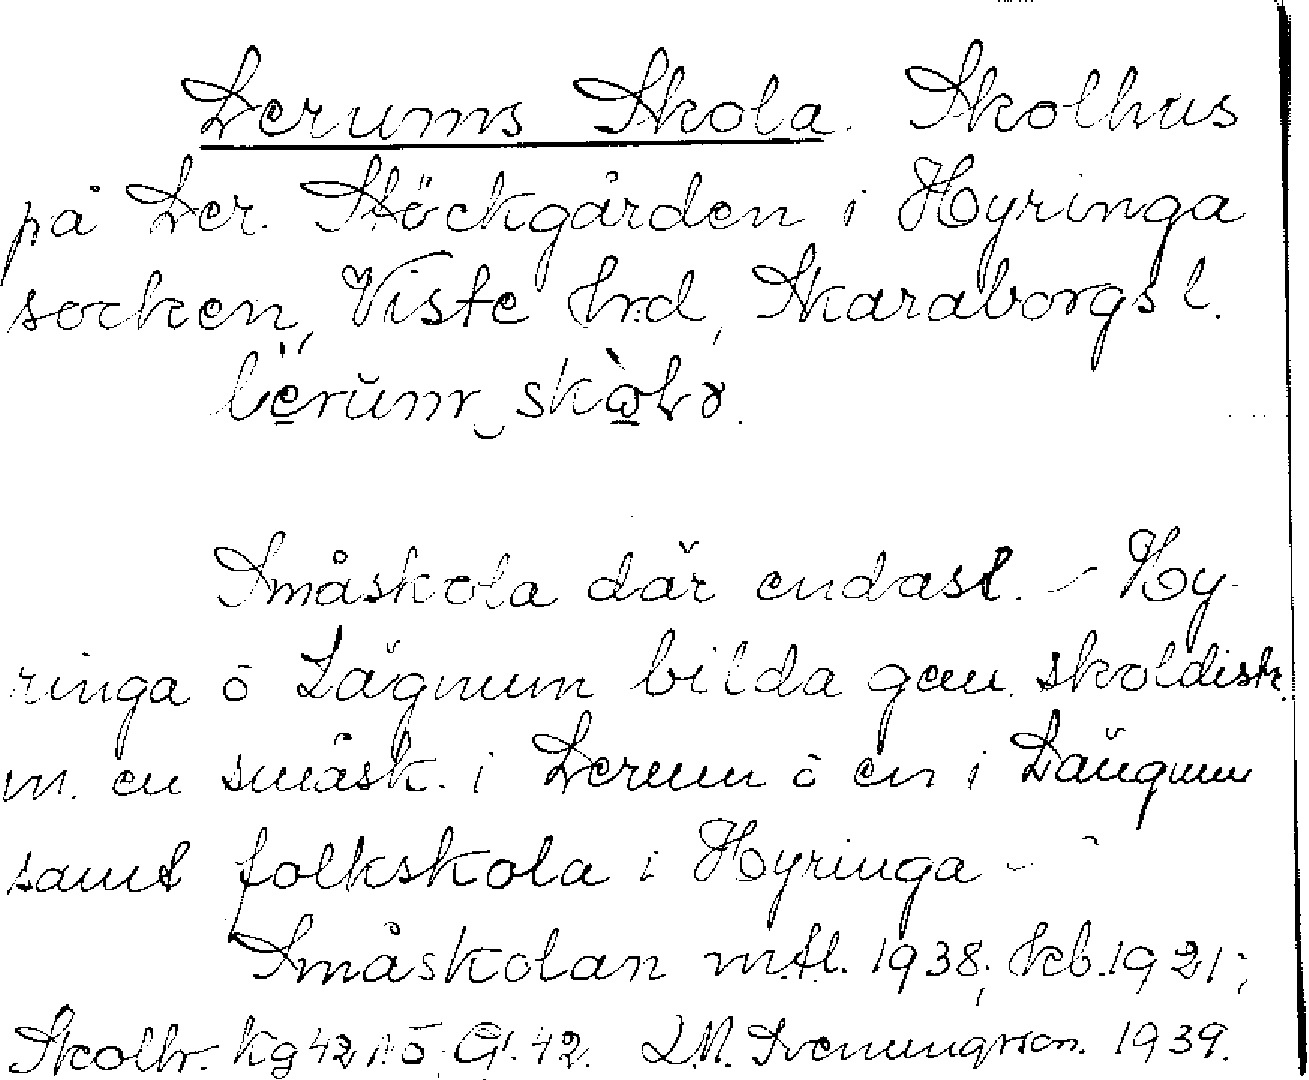 Lerums Skola. Skolhus
på Ler. Stöckgården i Hyringa
socken, Viste hrd, Skaraborgs l.
Småskola där endast. – Hy-
ringa o Längnum bilda gem. skoldistr.
m. en småsk. i Lerum o en i Längnum
samt folkskola i Hyringa –
Småskolan m.fl. 1938; kb. 1921;
Skolhr. Kg 42 Gl. 42. 1939.